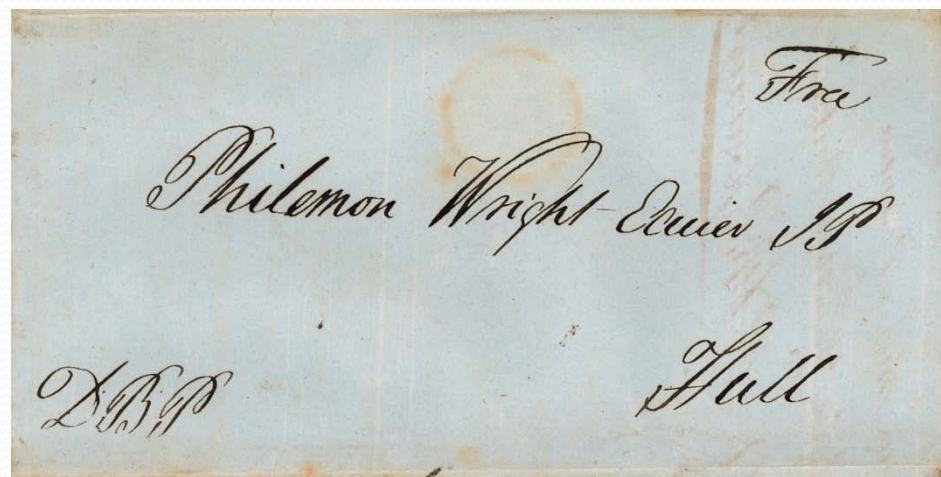 Free
Philemon Wright Ecuier JP
Hull
D.B.P